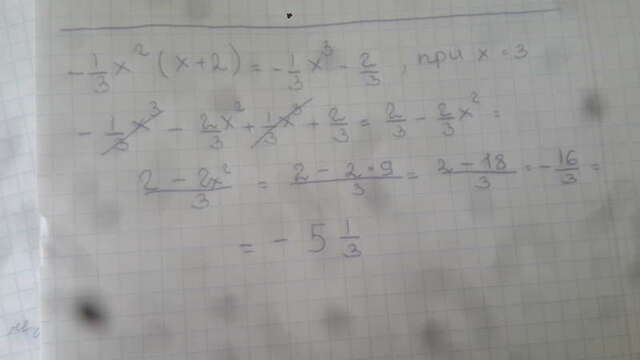 -1/3 x² (x+2) = -1/3 x³ - 2/3, при x = 3
-1/3 x³ - 2x²/3 + 1/3 x³ + 2/3 = 2/3 - 2/3 x² =
(2 - 2x²)/3 = (2 - 2·9)/3 = (2-18)/3 = -16/3 =
= -5 1/3